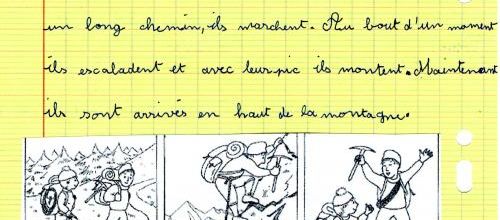 un long chemin, ils marchent. Au bout d'un moment
ils escaladent et avec leur pic ils montent. Maintenant
ils sont arrivés en haut de la montagne.